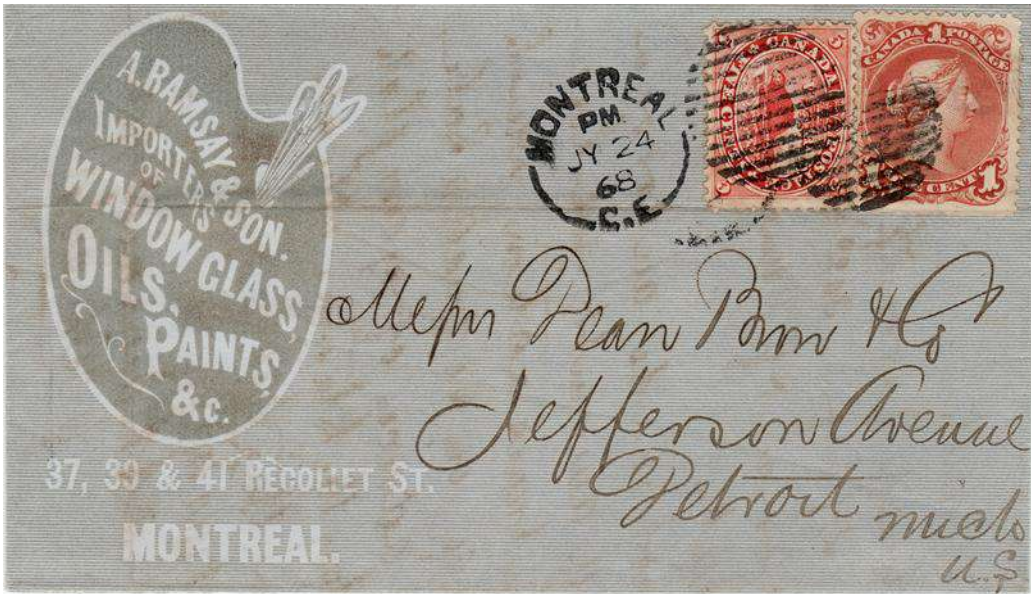 A. RAMSAY & SON.
IMPORTERS
OF
WINDOW GLASS,
OILS.
PAINTS,
&c.
37, 39 & 41 RECOLLET ST.
MONTREAL.
MONTREAL
PM
JY 24
68
C.E
5 CANADA 5
POSTAGE
CANADA 1 POSTAGE
CENT 1
Messrs Dean Brow & Co
Jefferson Avenue
Detroit
Mich
U.S